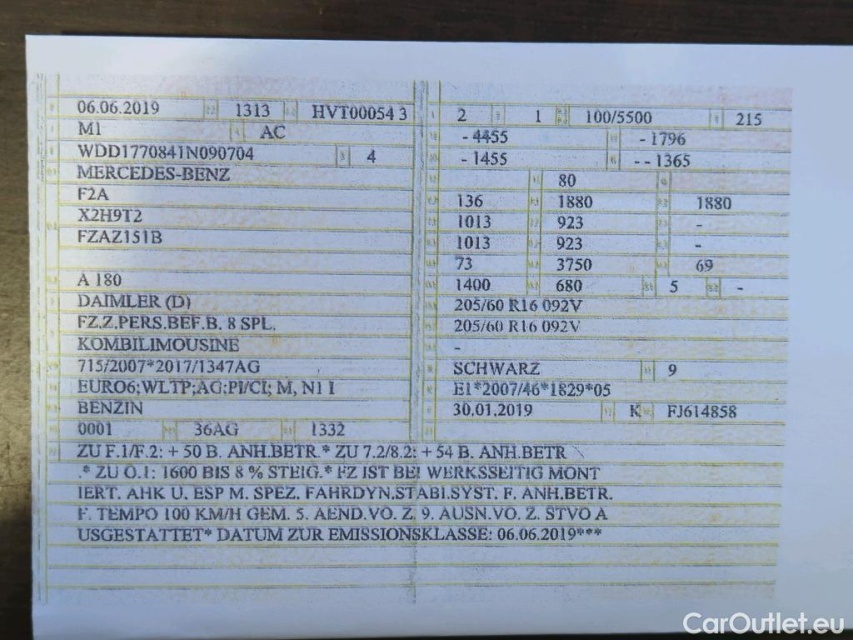 06.06.2019 1313 HVT00054 3
M1 AC
WDD1770841N090704 4
MERCEDES-BENZ
F2A
X2H9T2
FZAZ151B
A 180
DAIMLER (D)
FZ.Z.PERS.BEF.B. 8 SPL.
KOMBILIMOUSINE
715/2007*2017/1347AG
EURO6;WLTP;AG:PI/CI; M, N1 I
BENZIN
0001 36AG 1332
2 1 100/5500 215
- 4455 - 1796
- 1455 - - 1365
80
136 1880 1880
1013 923 -
1013 923 -
73 3750 69
1400 680 5 -
205/60 R16 092V
205/60 R16 092V
-
SCHWARZ 9
E1*2007/46*1829*05
30.01.2019 K FJ614858
ZU F.1/F.2: + 50 B. ANH.BETR.* ZU 7.2/8.2: + 54 B. ANH.BETR
.* ZU O.1: 1600 BIS 8 % STEIG.* FZ IST BEI WERKSSEITIG MONT
IERT. AHK U. ESP M. SPEZ. FAHRDYN.STABI.SYST. F. ANH.BETR.
F. TEMPO 100 KM/H GEM. 5. AEND.VO. Z. 9. AUSN.VO. Z. STVO A
USGESTATTET* DATUM ZUR EMISSIONSKLASSE: 06.06.2019***
CarOutlet.eu